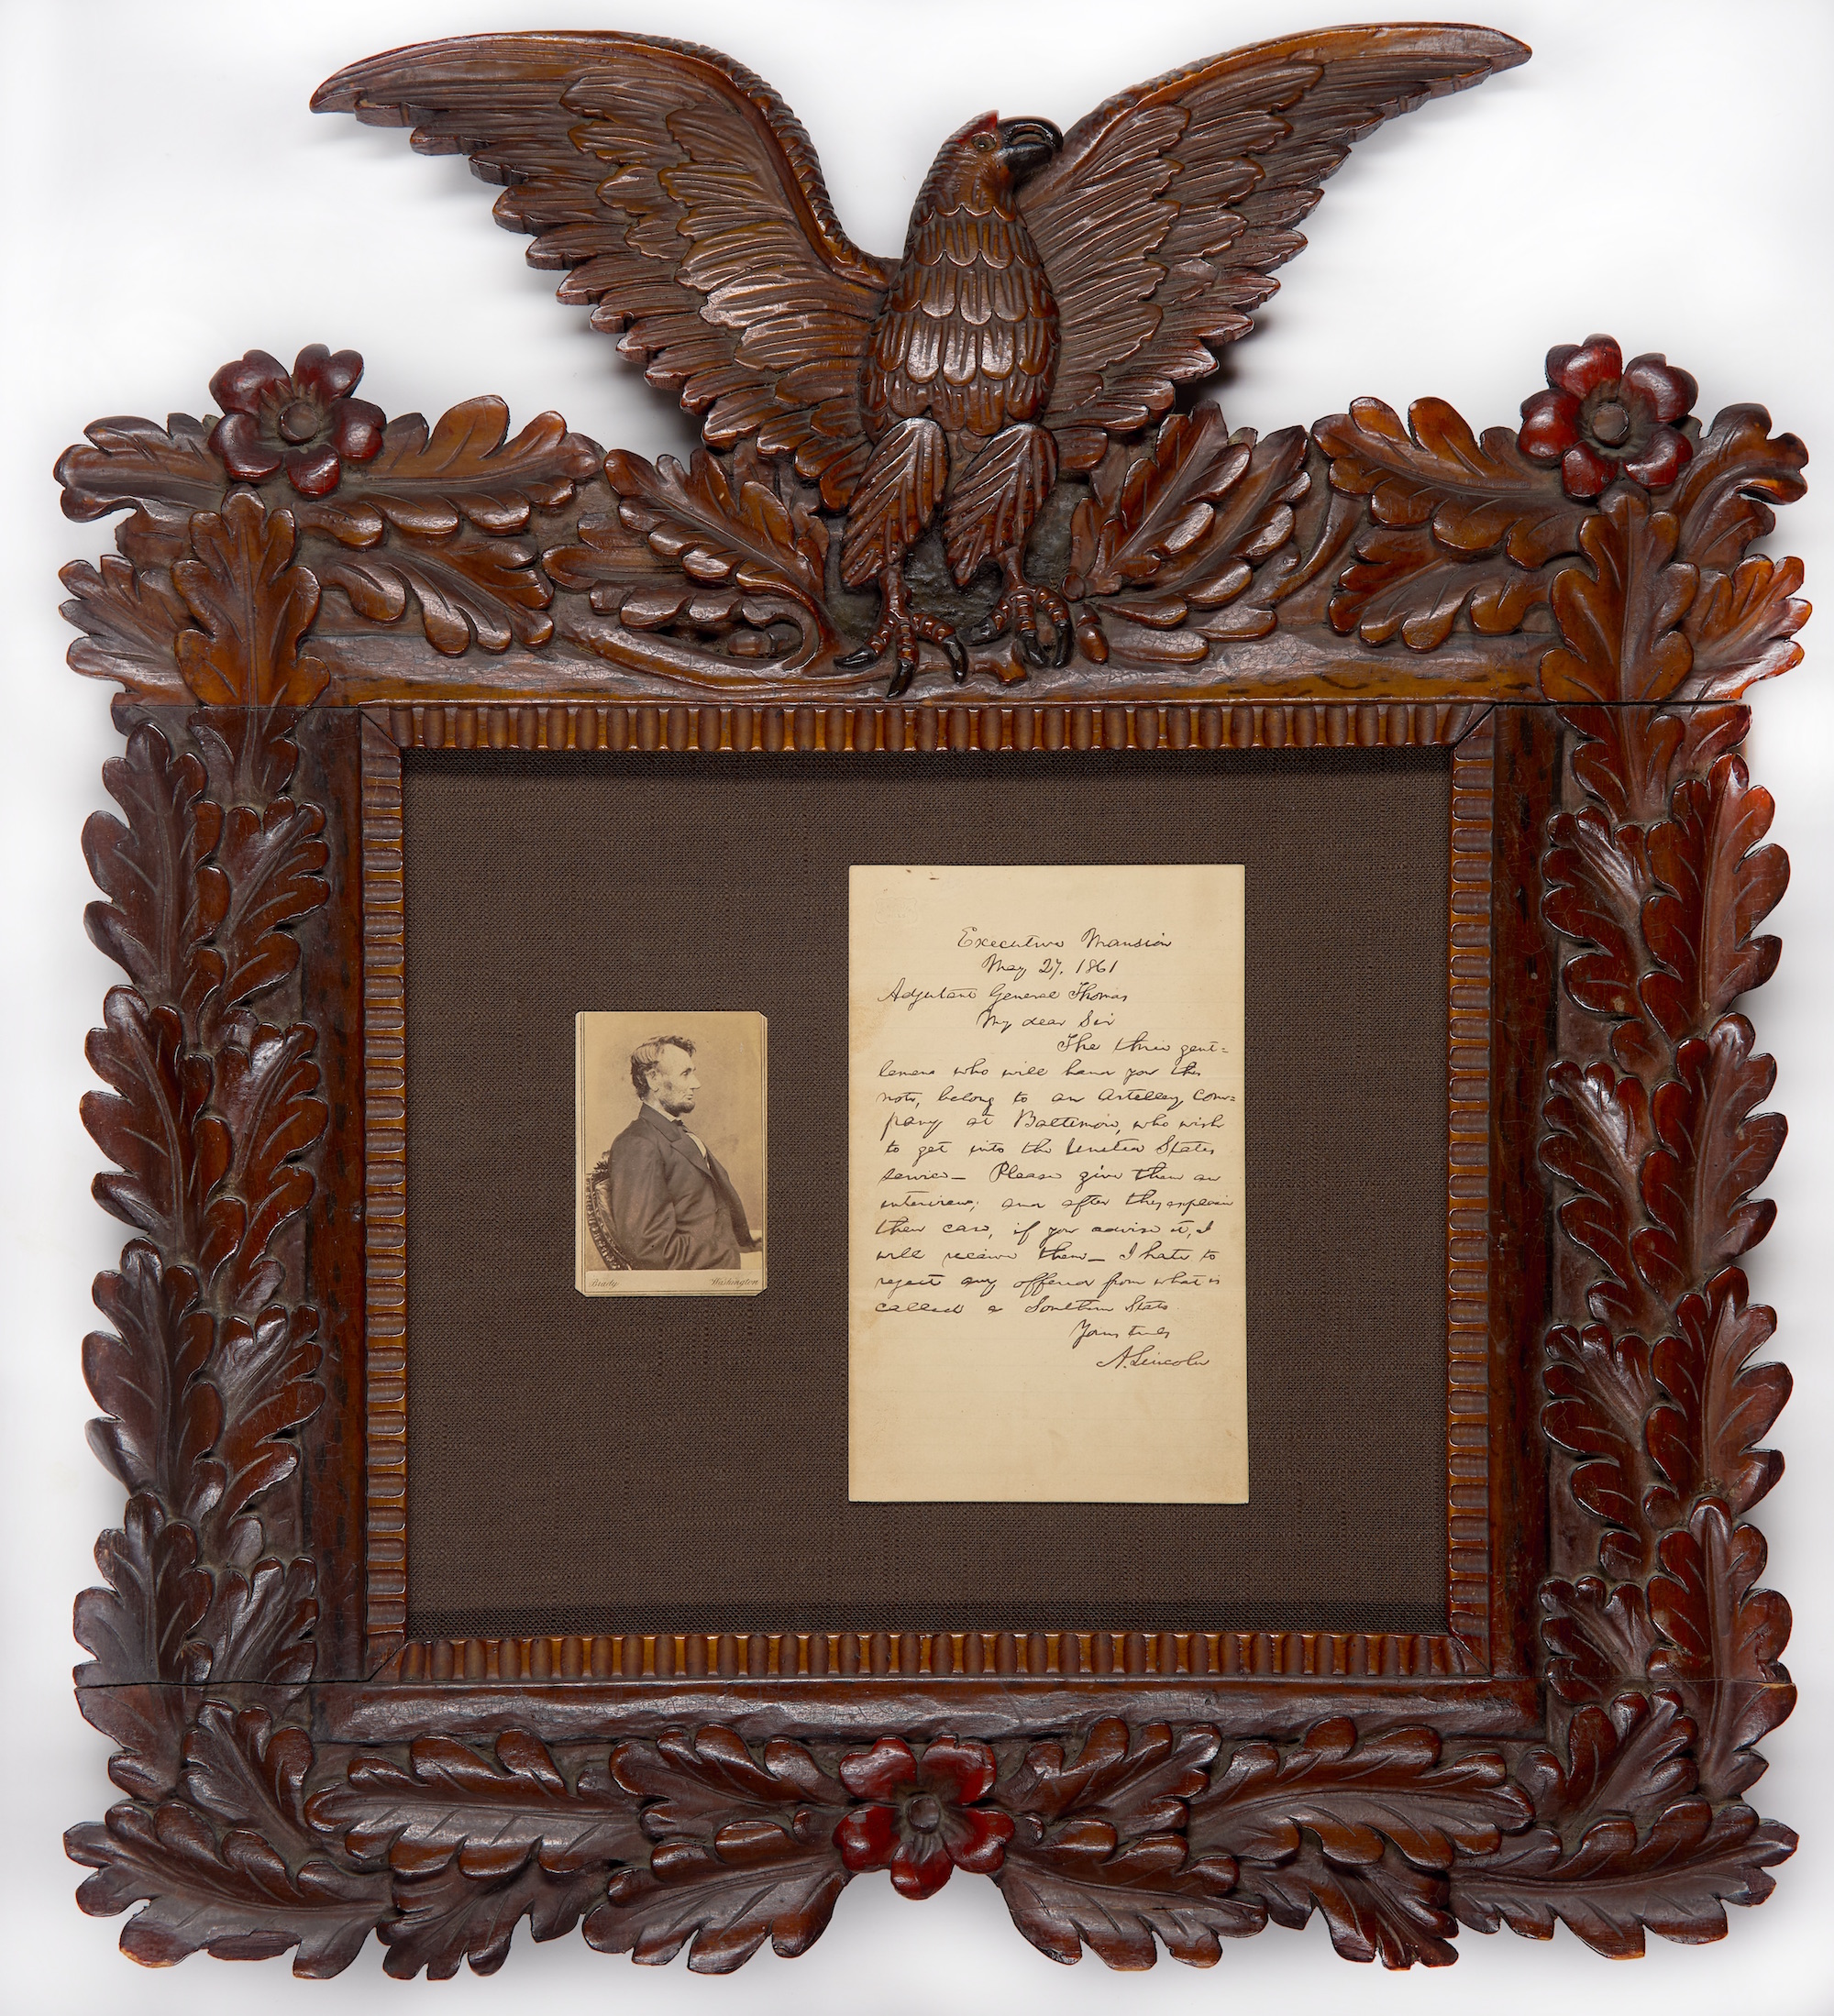 Executive Mansion
May 27. 1861
Adjutant General Thomas
My dear Sir
The three gent=
lemen who will hand you this
note, belong to an Artillery Com=
pany at Baltimore, who wish
to get into the United States
service— Please give them an
interview; and after they explain
their case, if you advise it, I
will receive them— I hate to
reject any offered from what is
called a Southern State.
Yours truly
A. Lincoln
Brady Washington